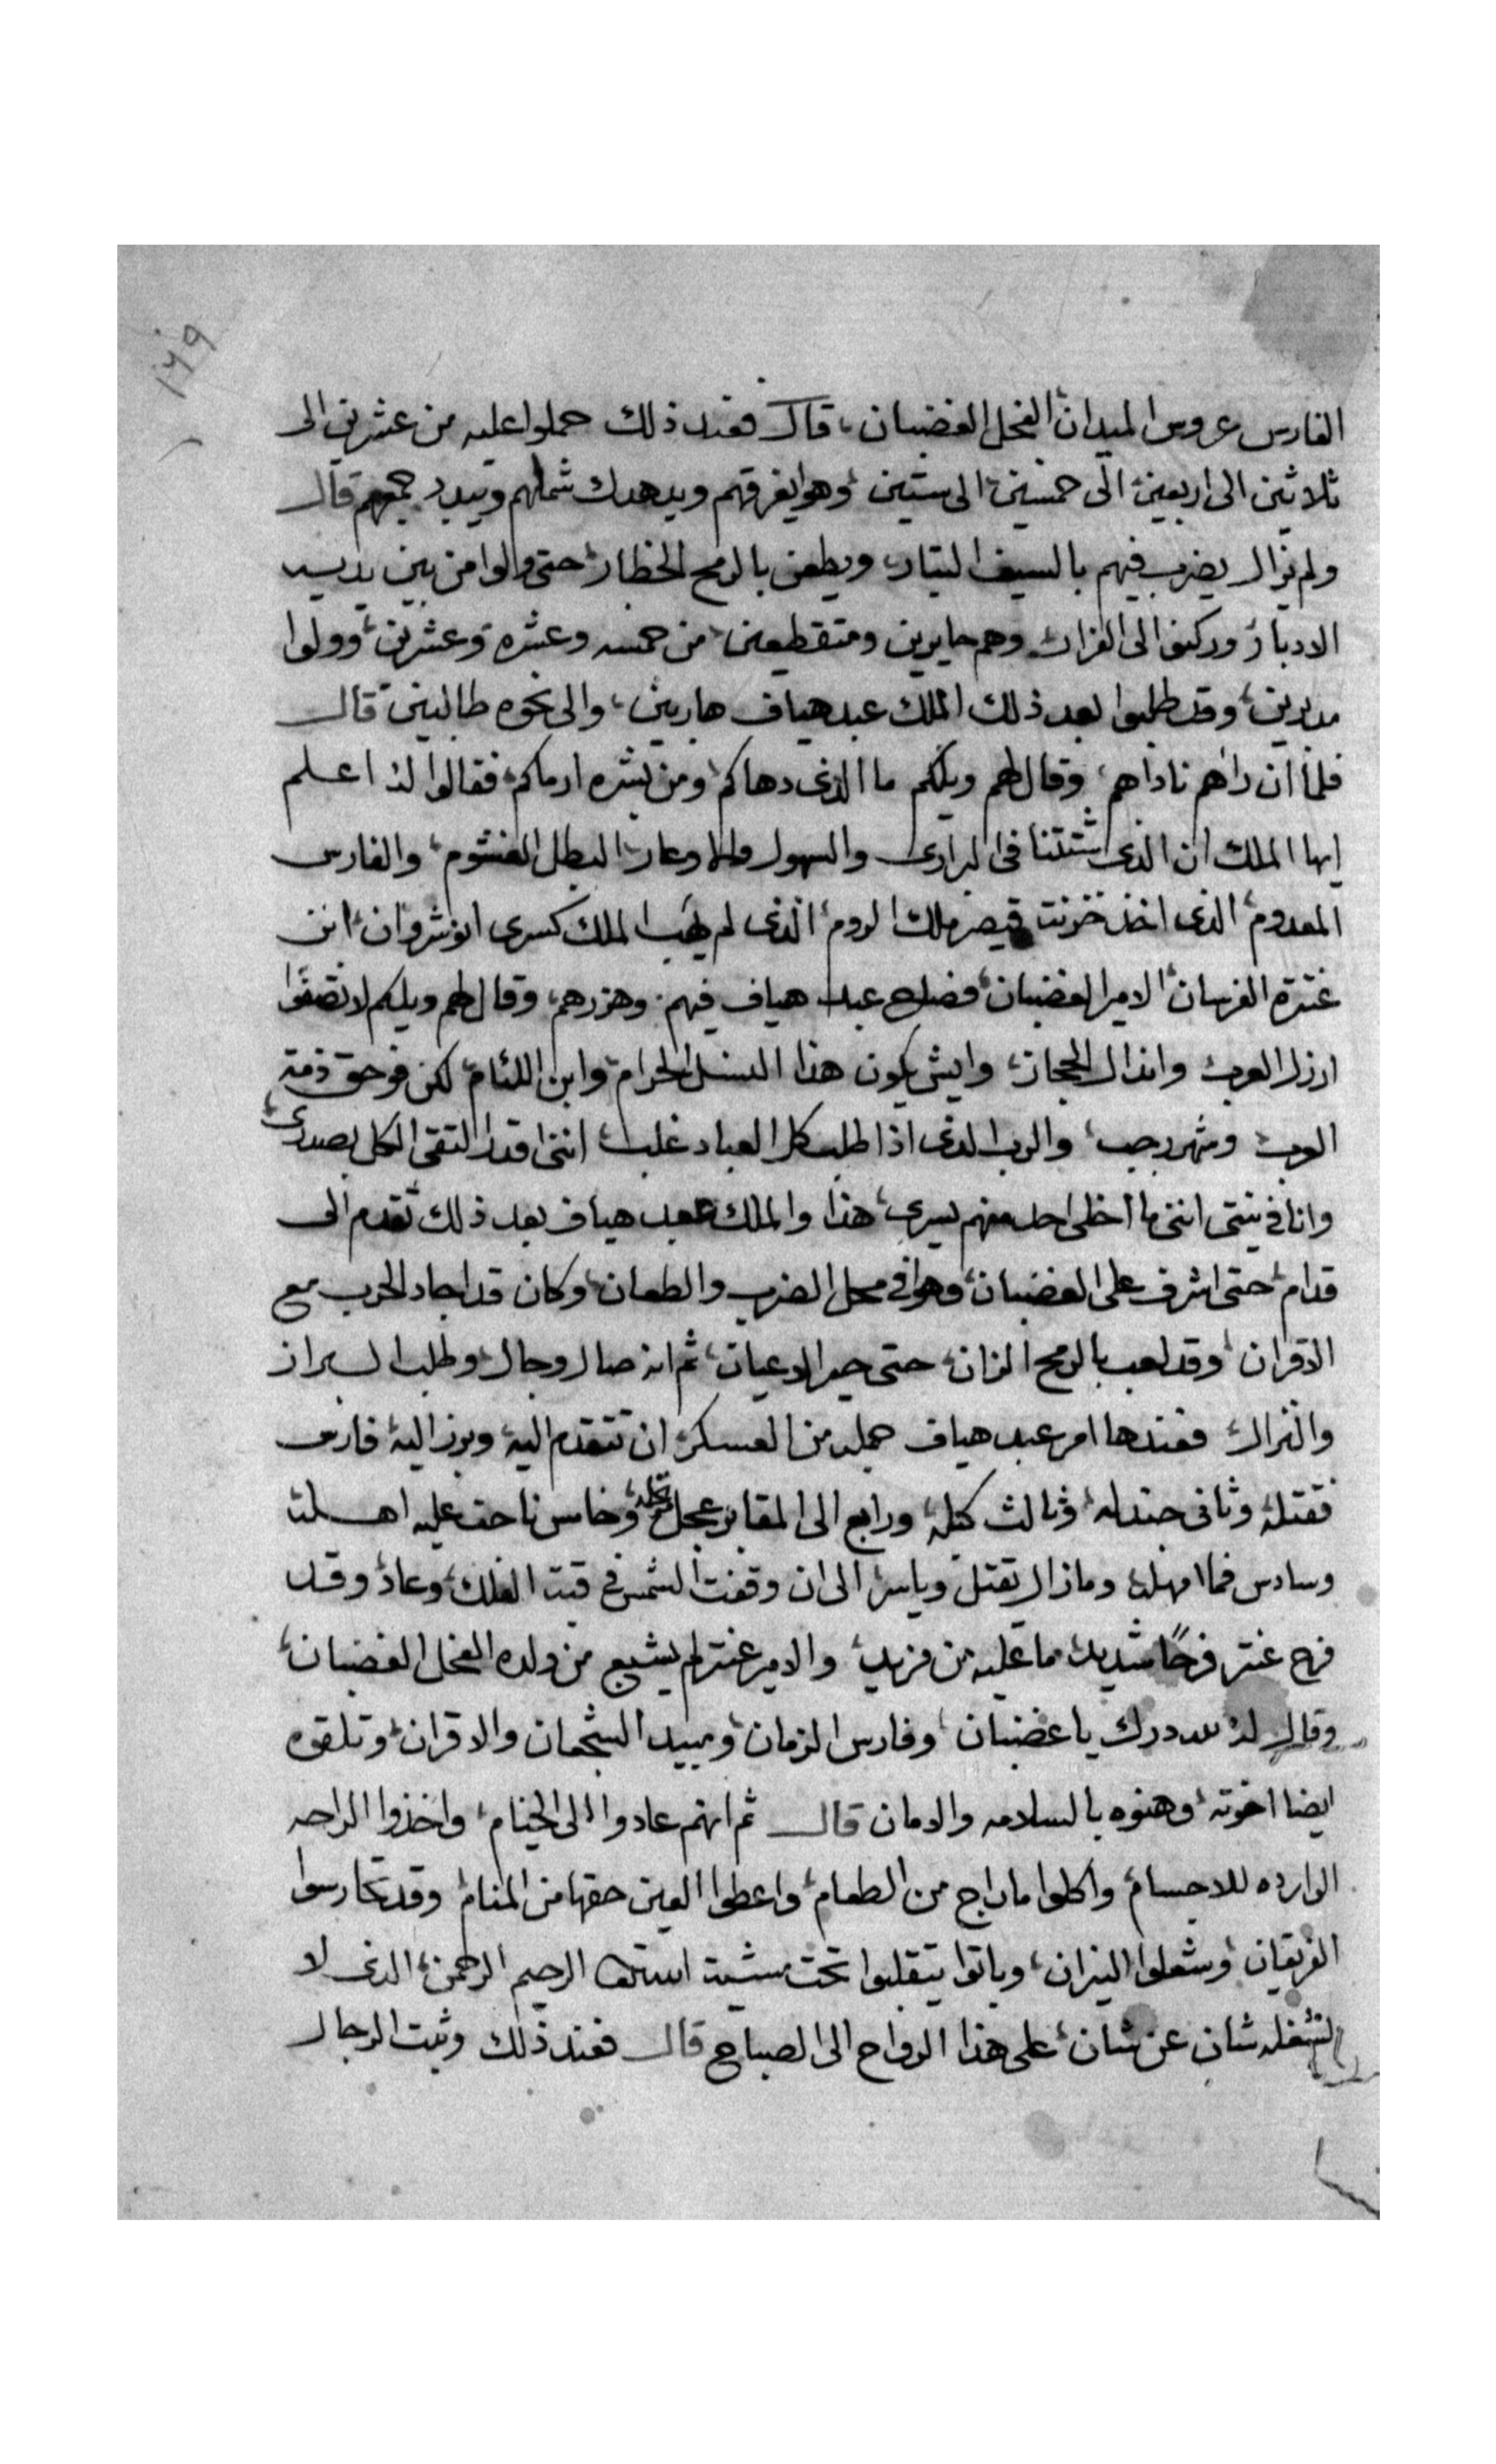 ١٢٩
الفارس عروس الميدان الفحل الغضبان، قال فعند ذلك حملوا عليه من عشرين الى
ثلاثين الى اربعين الى خمسين الى ستين وهو يفرقهم ويدهدك شملهم ويبدد جمعهم قال
ولم يزال يضرب فيهم بالسيف البتار ويطعن بالرمح الخطار حتى والوا من بين يديه
الادبار وركنوا الى الفرار وهم حايرين ومتقطعين من خمسه وعشره وعشرين وولوا
مدبرين وقد طلبوا بعد ذلك الملك عبد هياف هاربين، والى نحوه طالبين قال
فلما ان راهم ناداهم وقال لهم ويلكم ما الذى دهاكم ومن بشره ارماكم فقالوا له اعلم
ايها الملك ان الذى شتتنا فى البرارى والسهول والاوعار البطل الغشوم والفارس
المعدوم الذى اخذ خزنت قيصر ملك الروم الذى لم يهب الملك كسرى انوشروان ابن
عنترة الفرسان الامير الغضبان فصاح عبد هياف فيهم وهزرهم وقال لهم ويلكم لا تصفوا
ارذل العرب وانذال الحجاز وايش يكون هذا النسل الحرام وابن اللئام لكن فوحق ذمة
العرب وشهر رجب والرب الذى اذا طلب كل العباد غلب اننى اقدر التقى الكل بصدرى
وانا فى نيتى اننى ما اخلى احد منهم يسرى هذا والملك عبد هياف بعد ذلك تقدم الى
قدام حتى اشرف على الغضبان وهو فى محل الضرب والطعان وكان قد اجاد الحرب مع
الاقران وقد لعب بالرمح الزان حتى حير الاعيان ثم انه صال وجال وطلب البراز
والنزال فعندها امر عبد هياف جمله من العسكر ان تتقدم اليه وبرز اليه فارس
فقتله وثانى جندله وثالث كبله ورابع الى المقابر عجل مرتحله وخامس ناحت عليه اهله
وسادس فما امهله وما زال يقتل وياسر الى ان وقفت الشمس فى قبت الفلك وعاد وقد
فرح عنتر فرحًا شديد ما عليه من مزيد والامير عنتر لم يشبع من ولده الفحل الغضبان
وقال له لله درك يا غضبان وفارس الزمان ومبيد الشجعان والاقران وتلقوه
ايضا اخوته وهنوه بالسلامه والامان قال ثم انهم عادوا الى الخيام واخذوا الراحه
الوارده للاجسام واكلوا ما راج من الطعام واعطوا العين حقها من المنام وقد تحارسوا
الفريقان وشعلوا النيران وباتوا يتقلبوا تحت مشيت الله الرحيم الرحمن الذى لا
يشغله شان عن شان على هذا الرواح الى الصباح قال فعند ذلك وثبت الرجال